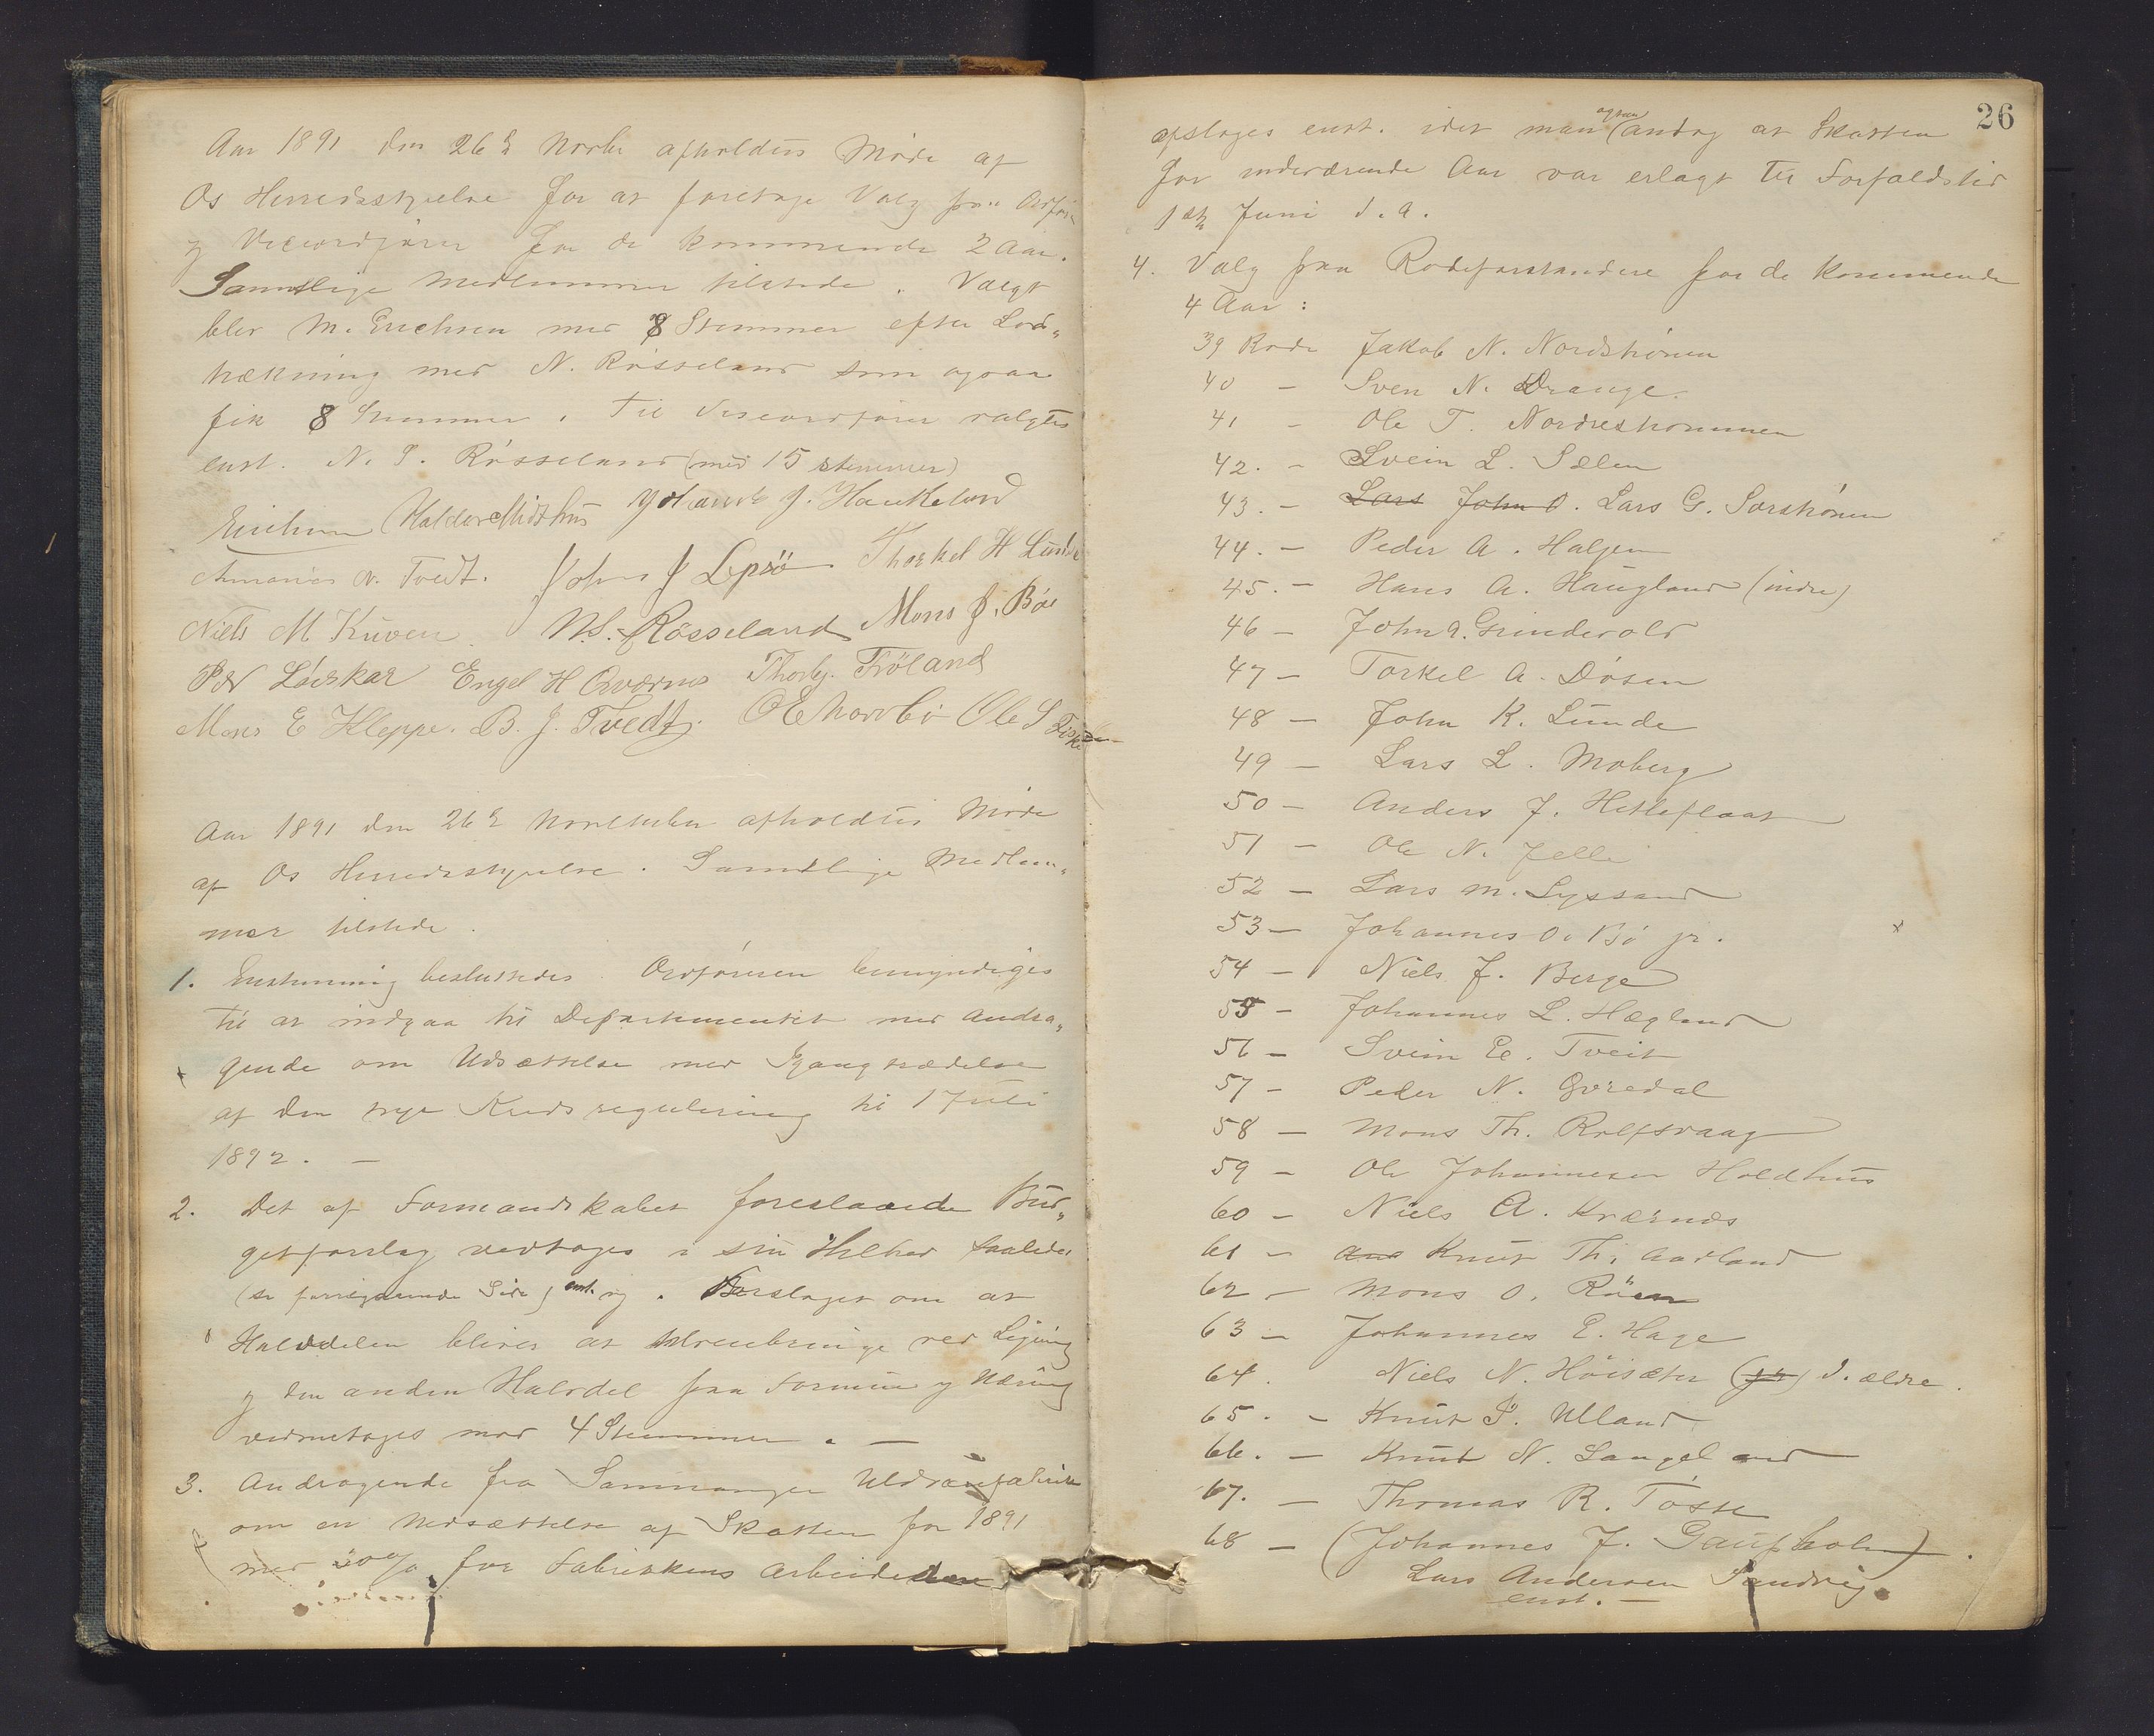 Aar 1891 den 26 d Novbr afholdtes Møde af
Os Herredsstyrelse for at foretage Valg paa Ordfør
og Viceordfører for de kommende 2 Aar.
Samtlige Medlemmer tilstede. Valgt
blev M. Erichsen med 8 Stemmer efter Lod„
trækning med N. Røsseland som ogsaa
fik 8 Stemmer. Til Viceordfører valgtes
enst. N. S. Røsseland (med 15 stemmer)
Erichsen Haldor Midthus J. Haukeland
N. Tvedt. John J Lepsö Thorkel H Lunde
Niels M Kuven N.S. Røsseland Mons J. Bøe
Engel H Thorbj. Fröland
Mons E Kleppe. B. J. Tvedt. Ole S
Aar 1891 den 26 d November afholdtes Møde
af Os Herredsstyrelse. Samtlige Medlem„
mer tilstede.
1. Enstemmig besluttedes. Ordføreren bemyndiges
til at indgaa til Departementet med Andra„
gende om Udsættelse med Igangtrædelse
af den nye Kredsregulering til 1 Juli
1892. —
2. Det af Formandskabet foreslaaede Bud„
getforslag vedtoges i sin Helhed saaledes
(se foregaaende Side) enst. Forslaget om at
Halvdelen bliver at udrede ved Ligning
og den anden Halvdel paa Formue og Næring
nedstemtes mod 4 Stemmer. —
3. Andragende fra Samnanger Uldvarefabrik
om en Nedsættelse af Skatten for 1891
med 50% for Fabrikkens Arbeidere
26
afsloges enst. idet man ogsaa antog at Skatten
for indeværende Aar var erlagt til Forfaldstid
1ste Juni d. A.
4. Valg paa Rodeforstandere for de kommende
4 Aar:
39 Rode Jakob N. Nordstrønen
40 — Sven N. Drange.
41 — Ole T. Nordrestrømmen
42. — Svein L. Sælen
43. — Lars John O. Lars G. Sørstrønen
44. — Peder A. Haljem
45. — Hans A. Haugland (indre)
46 — John A. Grindevold
47 — Torkel A. Døsen
48 — John K. Lunde
49 — Lars L. Moberg
50 — Anders J. Hetleflaat
51 — Ole N. Jelle
52 — Lars M. Lyssand
53 — Johannes O. Bø jr.
54 — Niels J. Berge
55 — Johannes L. Hægland
56 — Svein E. Tveit
57 — Peder N. Gvredal
58 — Mons Th. Rolfsvaag
59 — Ole Johannesen Holdhus
60 — Niels A. Kværnæs
61 — And Knut Th. Aadland
62 — Mons O. Röen
63 — Johannes E. Hage
64. Niels N. Høisæter (jr) d. ældre.
65. — Knut P. Ulland
66. — Knut N. Langeland
67. — Thomas R. Tøsse
68 — (Johannes J. Gaupholm).
Lars Andersen Sandvig.
enst. —